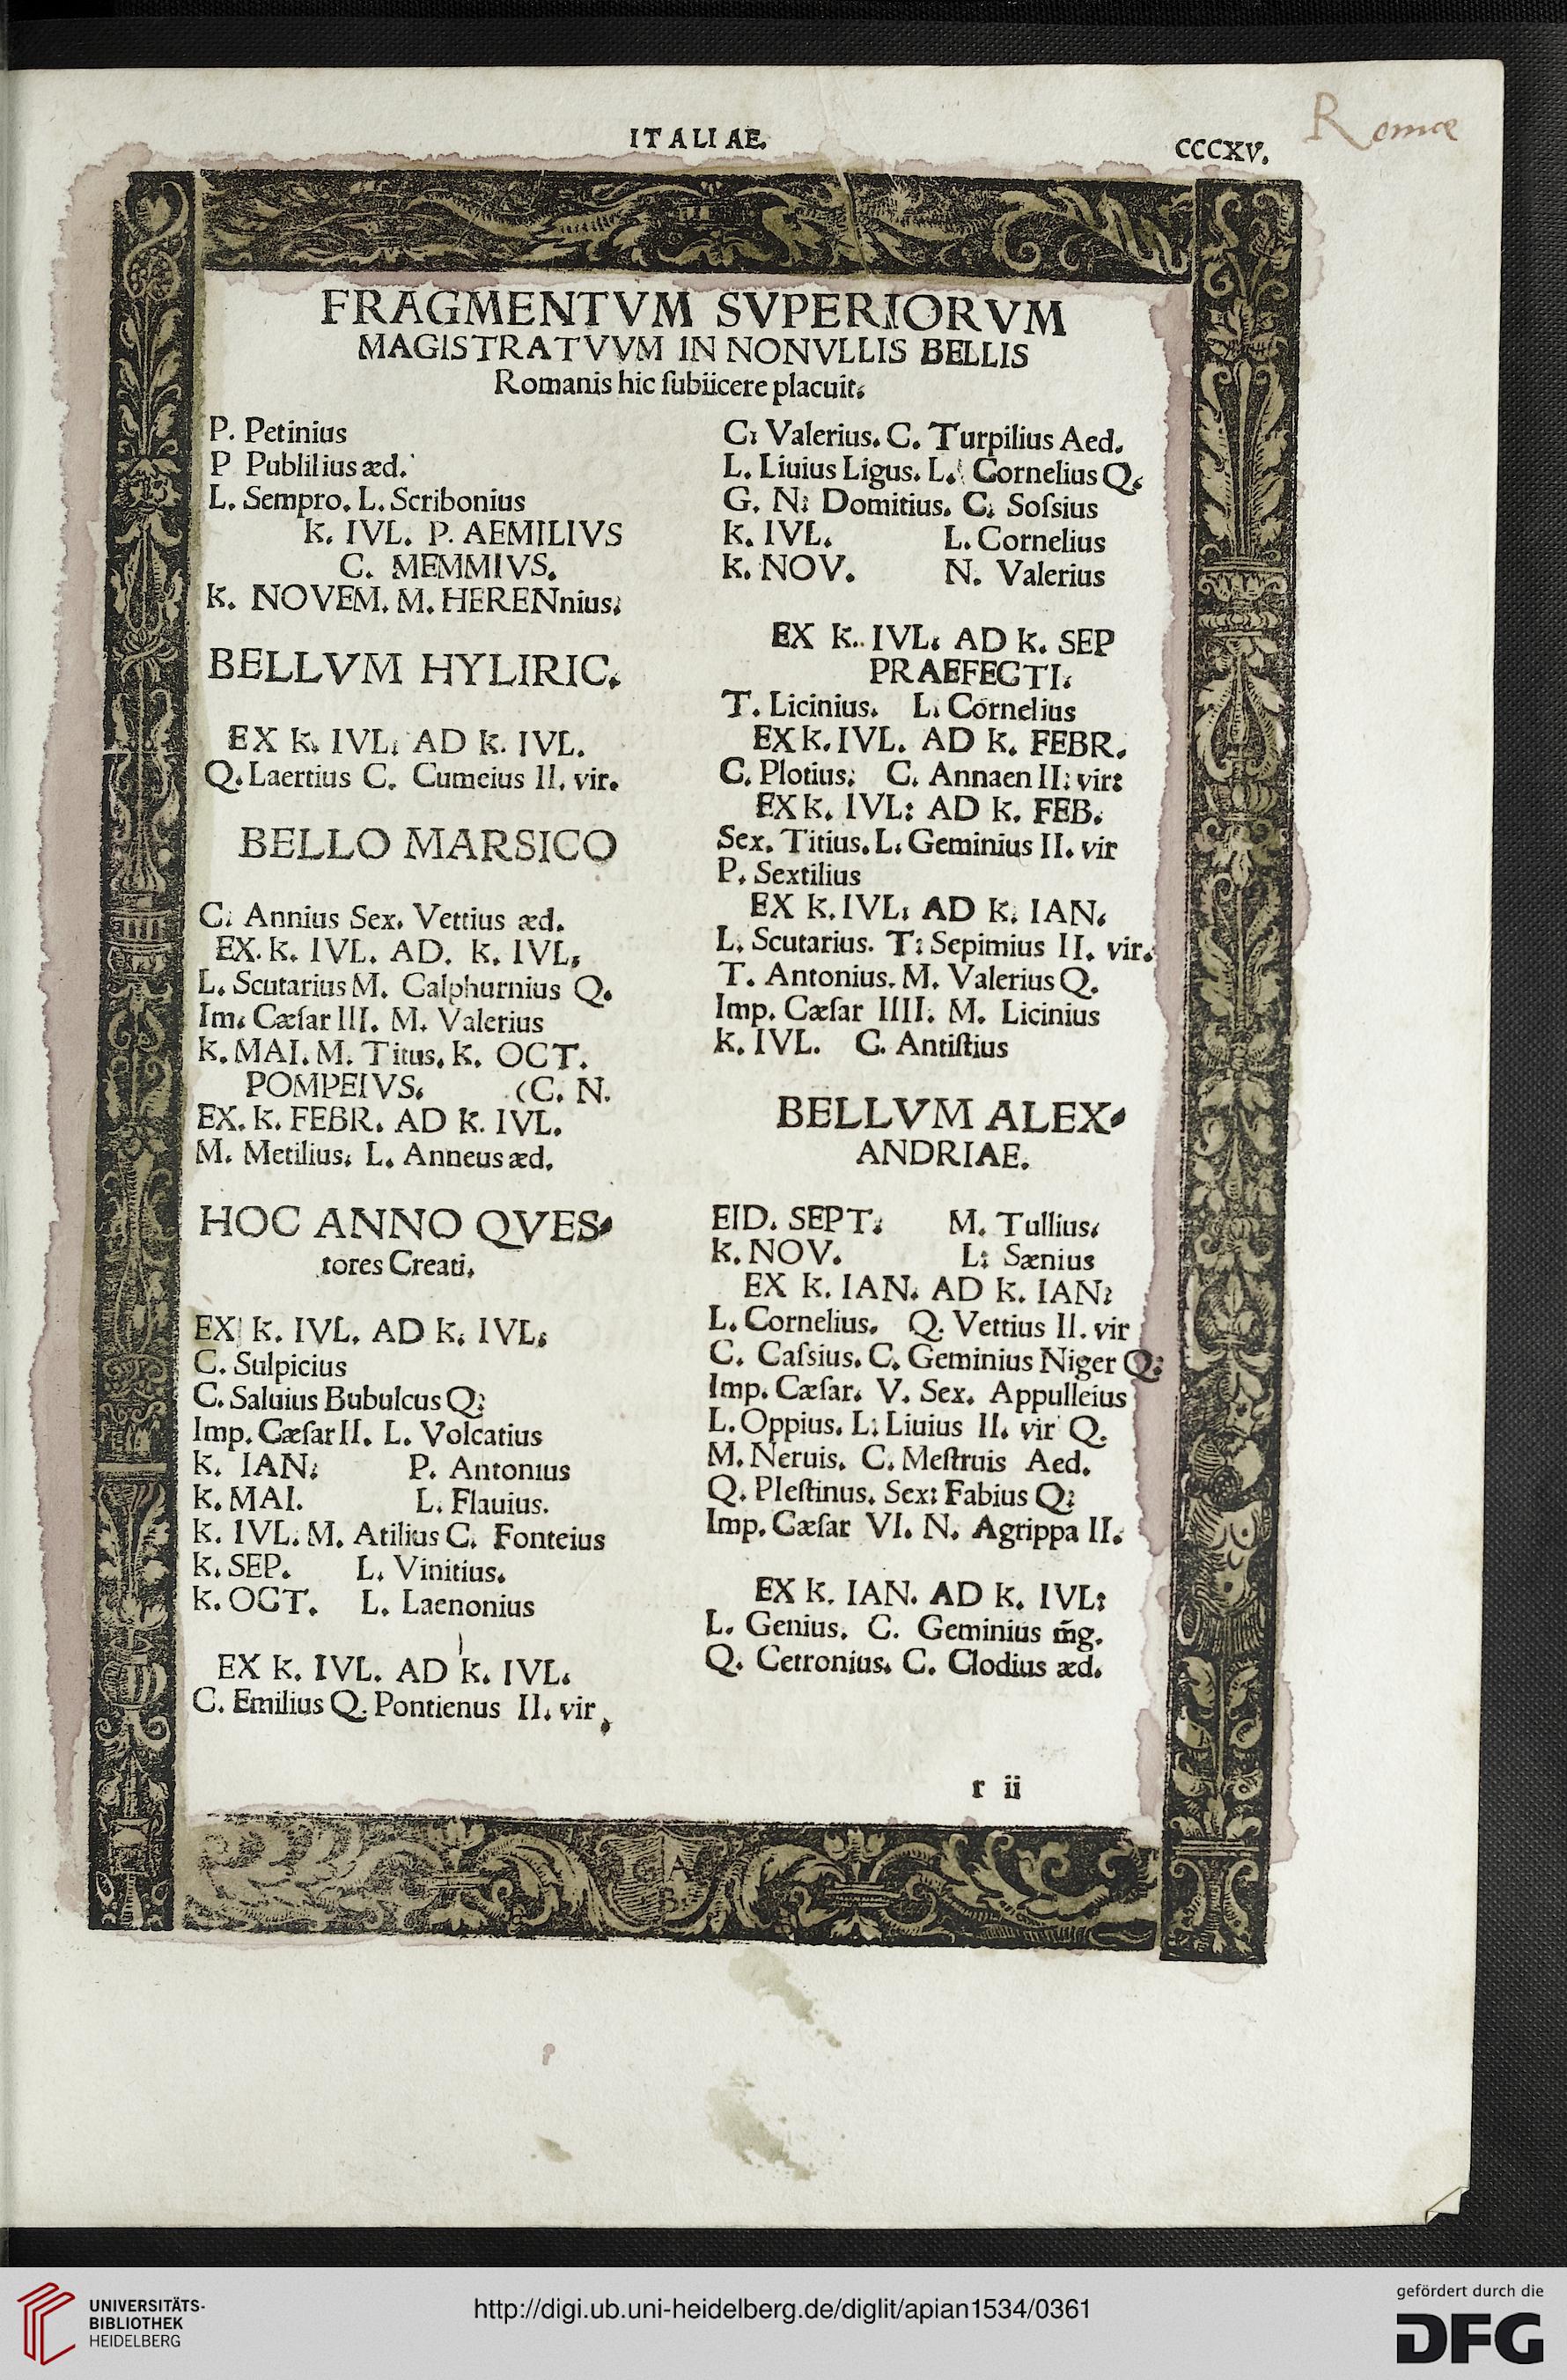 ITALIAE.
CCCXV.
Romæ
FRAGMENTVM SVPERIORVM
MAGISTRATVVM IN NONVLLIS BELLIS
Romanis hic ſubiicere placuit.
P. Petinius
P Publilius æd.
L. Sempro. L. Scribonius
K. IVL. P. AEMILIVS
C. MEMMIVS.
K. NOVEM. M. HERENnius.
BELLVM HYLIRIC.
EX K. IVL. AD K. IVL.
Q. Laertius C. Cumeius II. vir.
BELLO MARSICO
C. Annius Sex. Vettius æd.
EX. K. IVL. AD. K. IVL.
L. Scutarius M. Calphurnius Q.
Im. Cæſar III. M. Valerius
K. MAI. M. Titus. K. OCT.
POMPEIVS. (C. N.
EX. K. FEBR. AD K. IVL.
M. Metilius. L. Anneus æd.
HOC ANNO QVES-
tores Creati.
EX K. IVL. AD K. IVL.
C. Sulpicius
C. Saluius Bubulcus Q:
Imp. Cæſar II. L. Volcatius
K. IAN: P. Antonius
K. MAI. L. Flauius.
K. IVL. M. Atilius C. Fonteius
K. SEP. L. Vinitius.
K. OCT. L. Laenonius
EX K. IVL. AD K. IVL.
C. Emilius Q. Pontienus II. vir.
C: Valerius. C. Turpilius Aed.
L. Liuius Ligus. L. Cornelius Q.
G. N: Domitius. C. Soſsius
K. IVL. L. Cornelius
K. NOV. N. Valerius
EX K. IVL. AD K. SEP
PRAEFECTI.
T. Licinius. L. Cornelius
EX K. IVL. AD K. FEBR.
C. Plotius. C. Annaen II: vir:
EX K. IVL: AD K. FEB.
Sex. Titius. L. Geminius II. vir
P. Sextilius
EX K. IVL: AD K. IAN.
L. Scutarius. T: Sepimius II. vir.
T. Antonius. M. Valerius Q.
Imp. Cæſar IIII. M. Licinius
K. IVL. C. Antiſtius
BELLVM ALEX-
ANDRIAE.
EID. SEPT: M. Tullius.
K. NOV. L: Sænius
EX K. IAN. AD K. IAN:
L. Cornelius. Q. Vettius II. vir
C. Caſsius. C. Geminius Niger Q:
Imp. Cæſar. V. Sex. Appulleius
L. Oppius. L: Liuius II. vir Q.
M. Neruis. C. Meſtruis Aed.
Q. Pleſtinus. Sex: Fabius Q:
Imp. Cæſar VI. N. Agrippa II.
EX K. IAN. AD K. IVL:
L. Genius. C. Geminius m̃g.
Q. Cetronius. C. Clodius æd.
r ii
G A
B
UNIVERSITÄTS-
BIBLIOTHEK
HEIDELBERG
http://digi.ub.uni-heidelberg.de/diglit/apian1534/0361
gefördert durch die
DFG